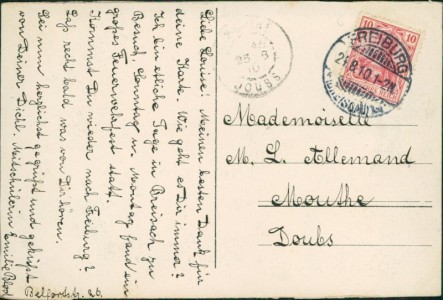 Liebe Louise! Meinen besten Dank für
deine Karte. Wie geht es Dir immer?
Ich bin etliche Tage in Breisach zu
Besuch, Sonntag u. Montag fand ein
großes Feuerwehrfest statt.
Kommst Du wieder nach Freiburg?
Laß recht bald was von Dir hören.
Sei nun herzlichst gegrüßt und geküßt
von Deiner Dich l. Mitschülerin Emilie
Belfortstr. 26.
JOUSS
10 10
FREIBURG
24.8.10.1-2N
(BREISGAU)
Mademoiselle
M. L. Allemand
Mouthe
Doubs